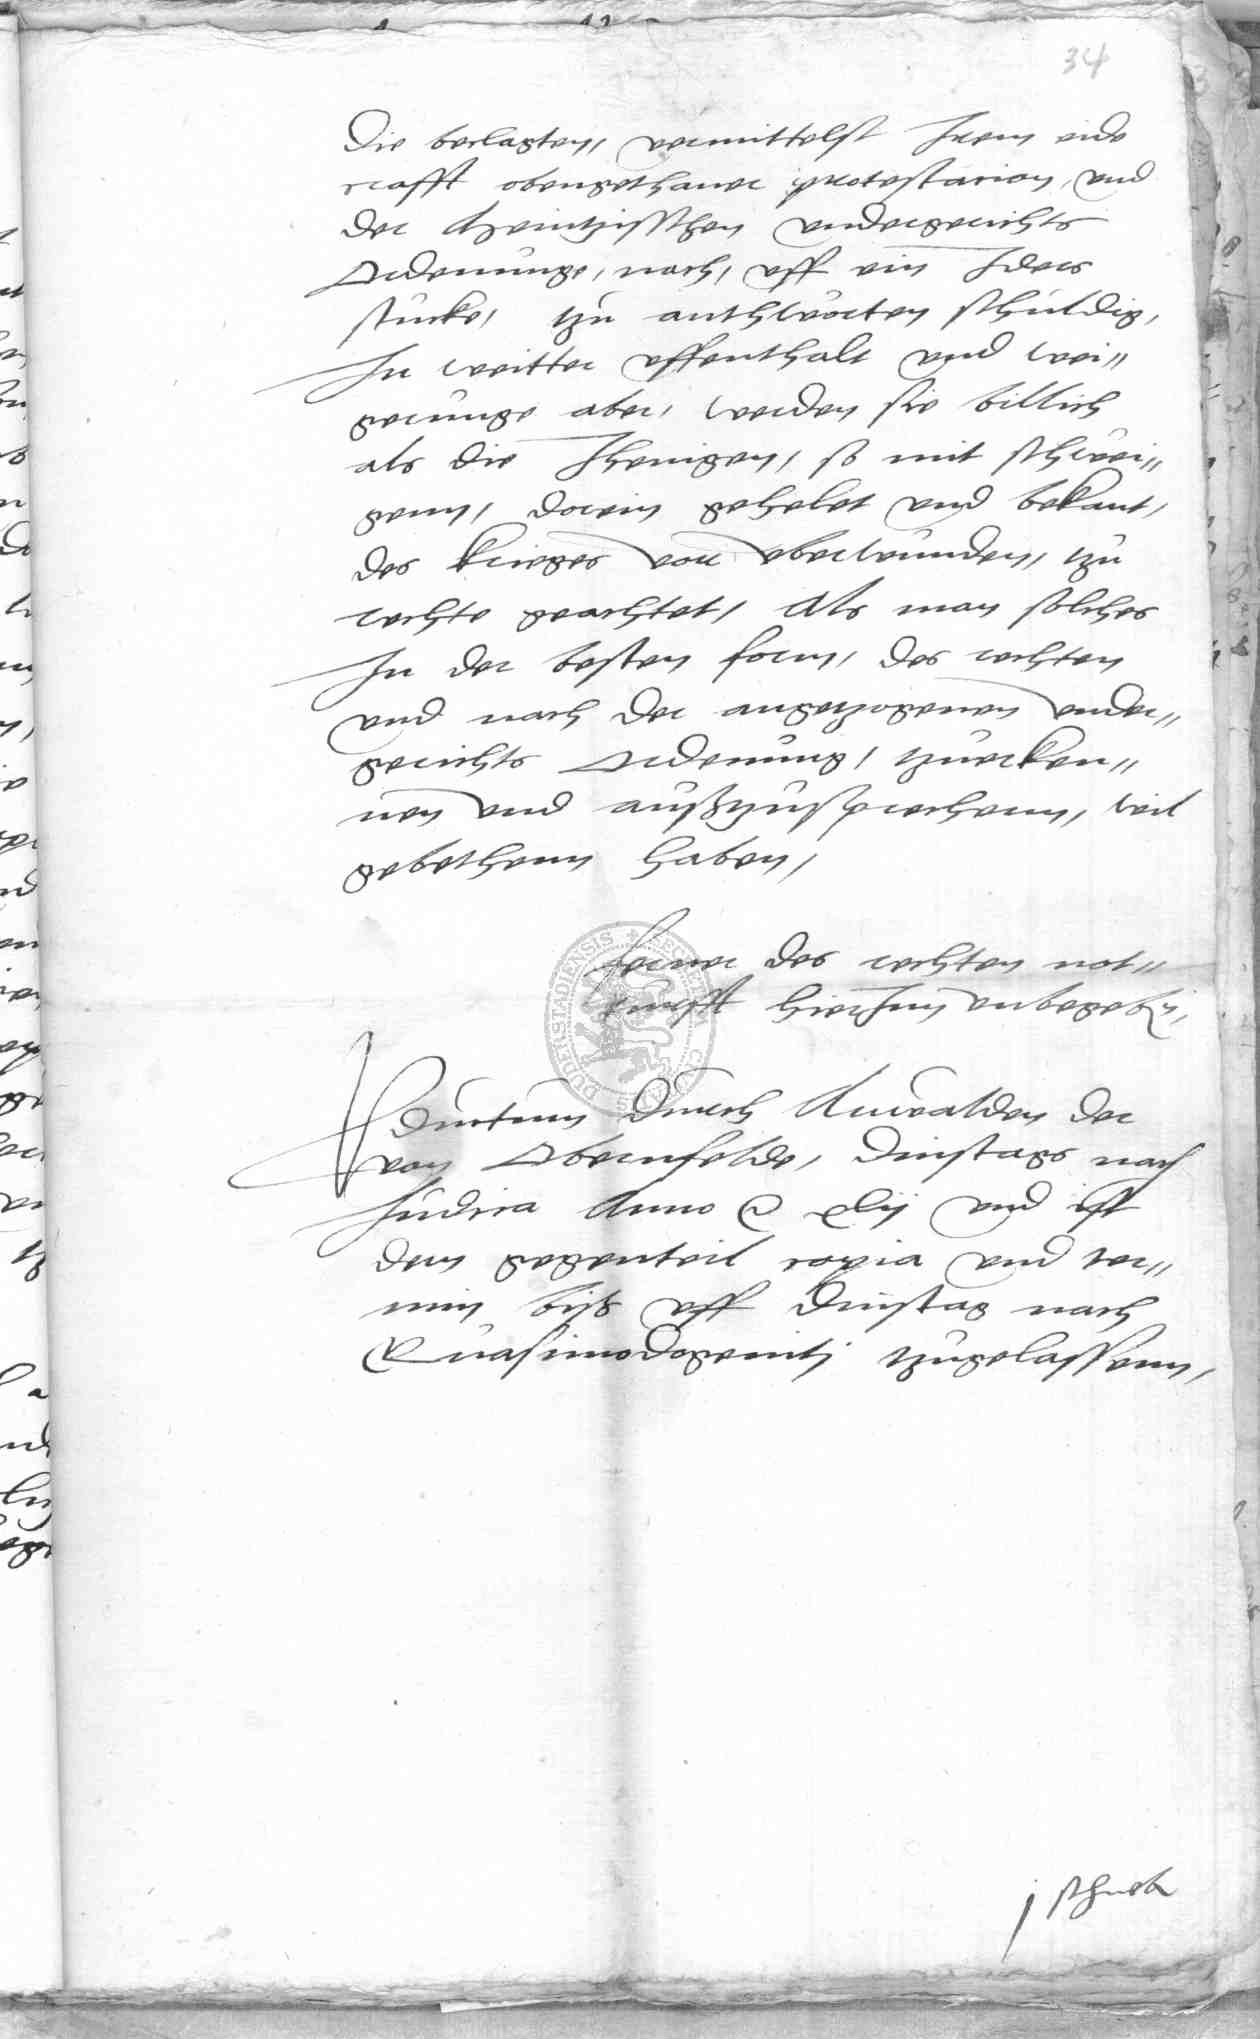 34
die beclagten, vermittelst Irem eide
crafft obengethaner protestation, und
der Meintzisschen undergerichts
Ordenunge, nach, uff ein Iders
stucke, tzu anthworten schuldig,
In weitter uffenthalt und wei"
gerunge aber, werden sie billich
als die Jhenigen, so mit schwei"
genn, dorein gehelet und bekant,
des krieges vor uberwunden, tzu
rechte geachtet, Als man solches
In der besten form, des rechten
und nach der angetzogenen under"
gerichts Ordenung, tzuerken"
nen und ausßtzusprechenn, weil
gebethenn haben,
ferner des rechten not"
turfft hierInn unbegeben,
Productum durch Anwalden der
von Obernfelde, Dinstags nach
Judica Anno xlij und ist
dem gegenteil copia und ter"
min biß uff Dinstag nach
Quasimodogeniti tzugelassenn,
DUDERSTADIENSIS
j schneb